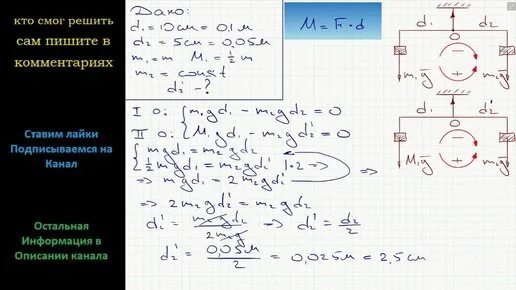 кто смог решить
сам пишите в
комментариях
Ставим лайки
Подписываемся на
Канал
Остальная
Информация в
Описании канала
Дано:
d₁ = 10см = 0,1м
d₂ = 5см = 0,05м
m₁ = m M₁ = ½ m
m₂ = const
d₂' - ?
M = F · d
I 0: { m₁gd₁ - m₂gd₂ = 0
II 0: { M₁gd₁ - m₂gd₂' = 0
{ mgd₁ = m₂gd₂
{ ½mgd₁ = m₂gd₂' |·2 =>
=>
=> mgd₁ = 2m₂gd₂'
=> 2m₂gd₂' = m₂gd₂
d₂' = m₂gd₂ / 2m₂g => d₂' = d₂/2
d₂' = 0,05м / 2 = 0,025м = 2,5см
d₁ d₂
m₁g m₂g
d₁ d₂'
M₁g m₂g